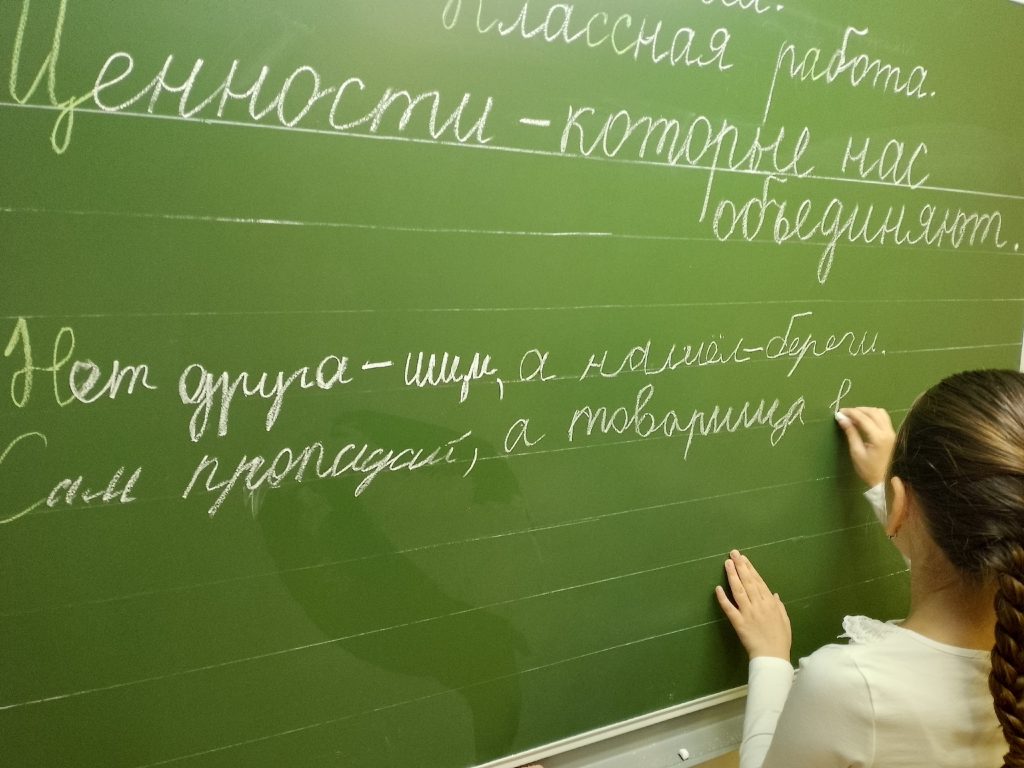 Классная работа.
Ценности - которые нас
объединяют.
Нет друга - ищи, а нашёл - береги.
Сам пропадай, а товарища в